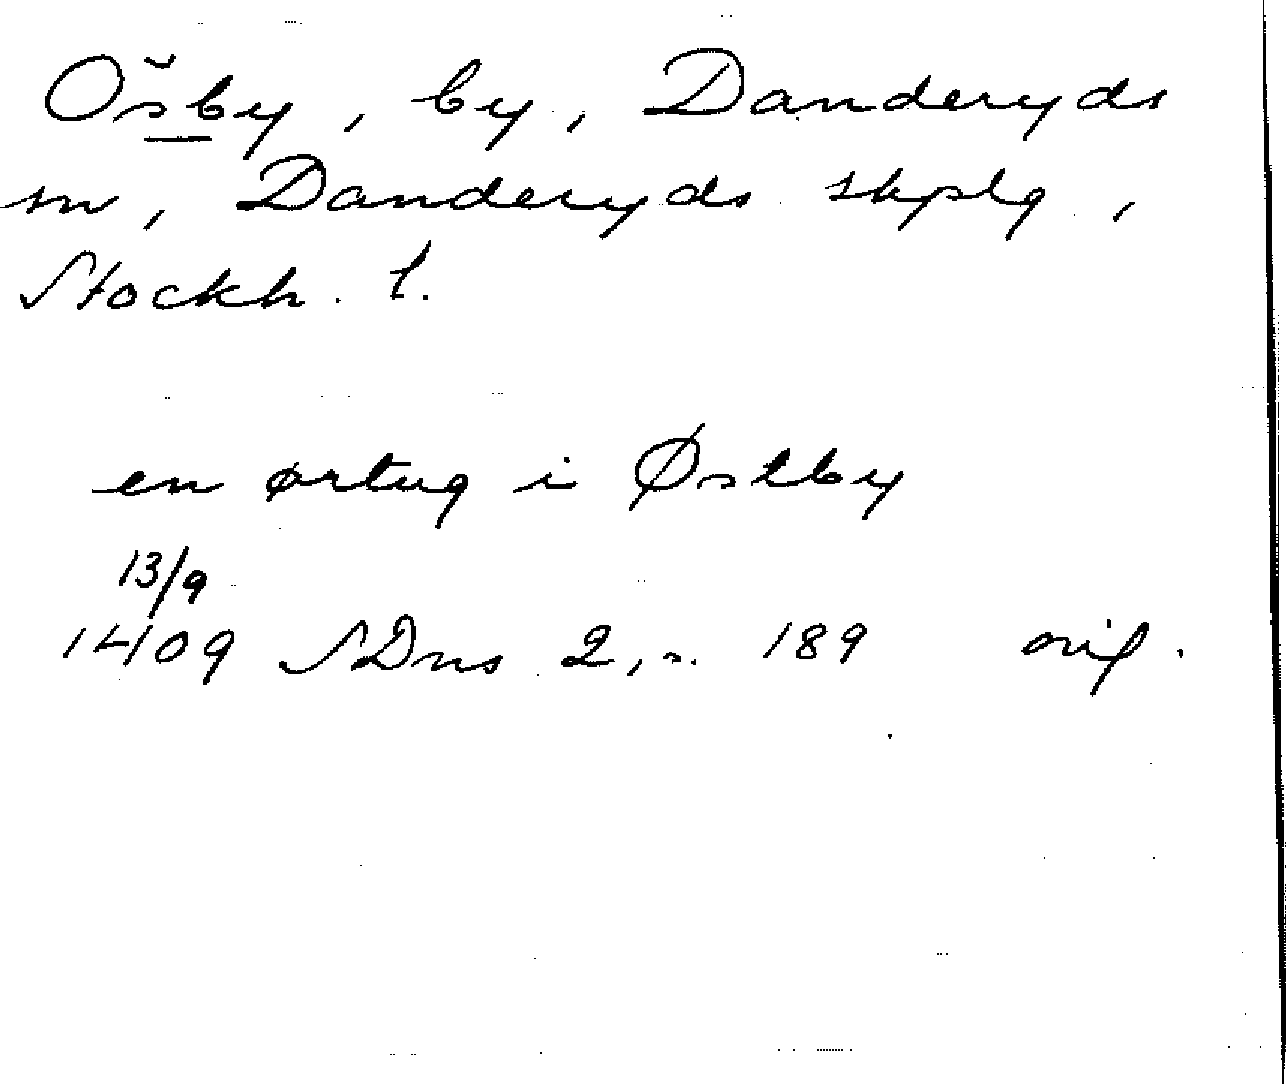 Ösby, by, Danderyds
sn, Danderyds skplg,
Stockh. l.
en ørtug i Østby
13/9
1409 SDns 2, s. 189 orig.